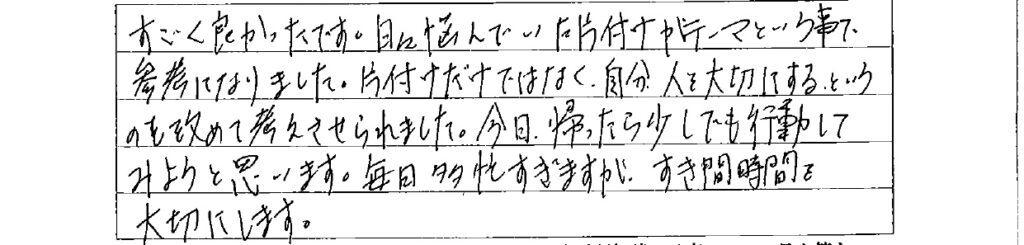 すごく良かったです。日々悩んでいた片付けがテーマという事で、
参考になりました。片付けだけではなく、自分、人を大切にする、という
のを改めて考えさせられました。今日、帰ったら少しでも行動して
みようと思います。毎日多忙すぎますが、すき間時間を
大切にします。